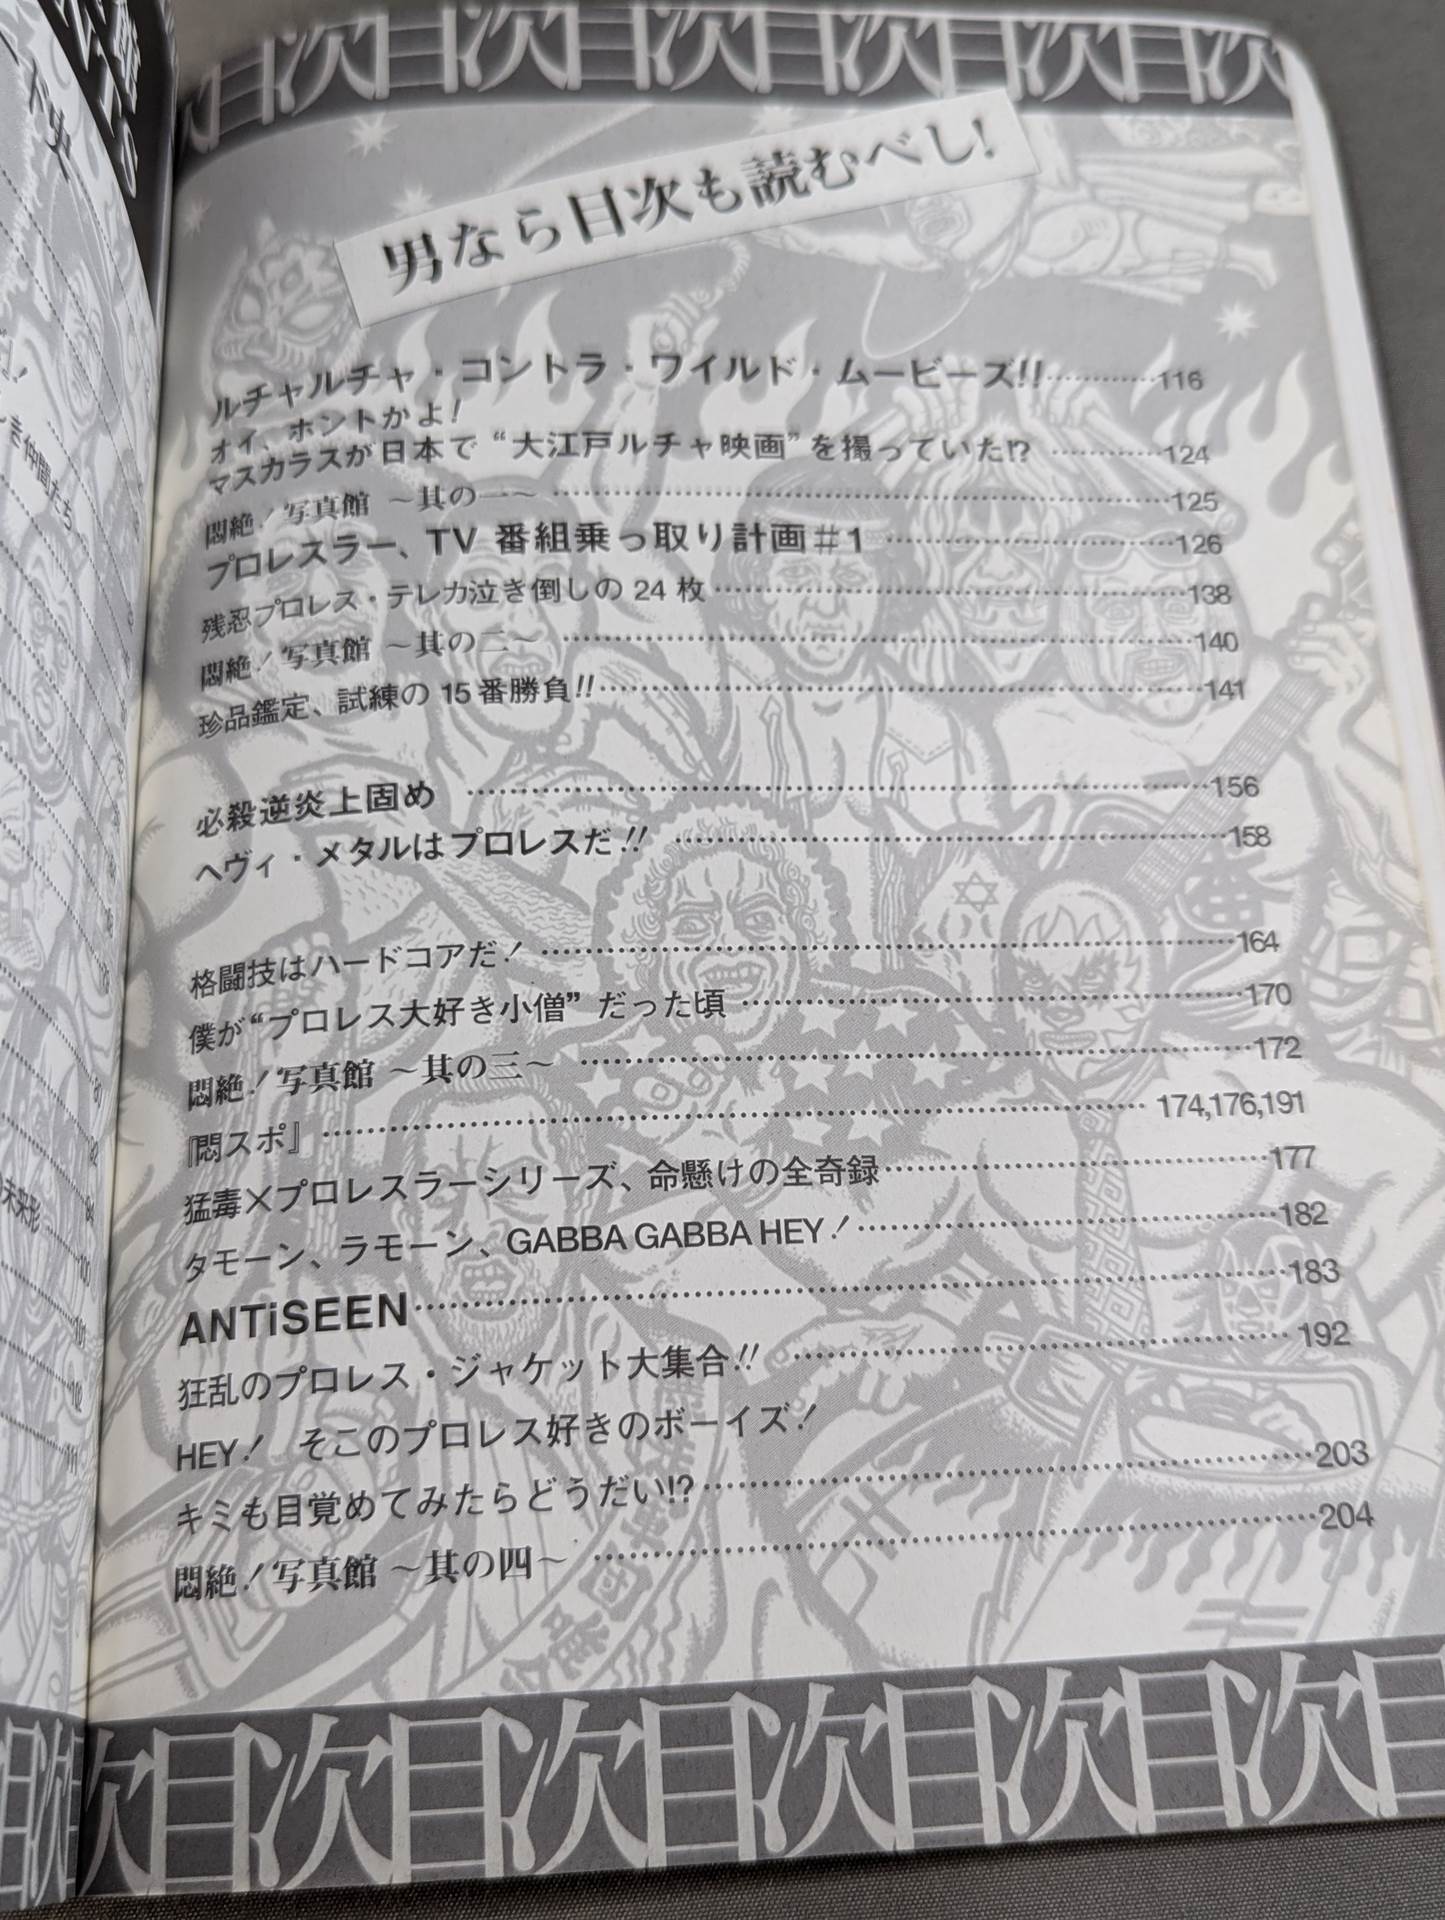 目次目次目次目次目次目次
男なら目次も読むべし!
ルチャルチャ・コントラ・ワイルド・ムービーズ!!…………116
オイ、ホントかよ!
マスカラスが日本で“大江戸ルチャ映画”を撮っていた!?…………124
悶絶!写真館 ～其の一～…………125
プロレスラー、TV 番組乗っ取り計画#1…………126
残忍プロレス・テレカ泣き倒しの 24 枚…………138
悶絶!写真館 ～其の二～…………140
珍品鑑定、試練の 15 番勝負!!…………141
必殺逆炎上固め…………156
ヘヴィ・メタルはプロレスだ!!…………158
格闘技はハードコアだ!…………164
僕が“プロレス大好き小僧”だった頃…………170
悶絶!写真館 ～其の三～…………172
『悶スポ』…………174,176,191
猛毒×プロレスラーシリーズ、命懸けの全奇録…………177
タモーン、ラモーン、GABBA GABBA HEY!…………182
ANTiSEEN…………183
狂乱のプロレス・ジャケット大集合!!…………192
HEY! そこのプロレス好きのボーイズ!
キミも目覚めてみたらどうだい!?…………203
悶絶!写真館 ～其の四～…………204
次目次目次目次目次目次目
き仲間たち
未来形……100
101
102
111